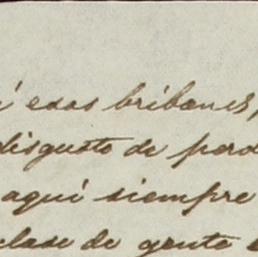 esos bribones,
disgusto de perd
aquí siempre
clase de gente